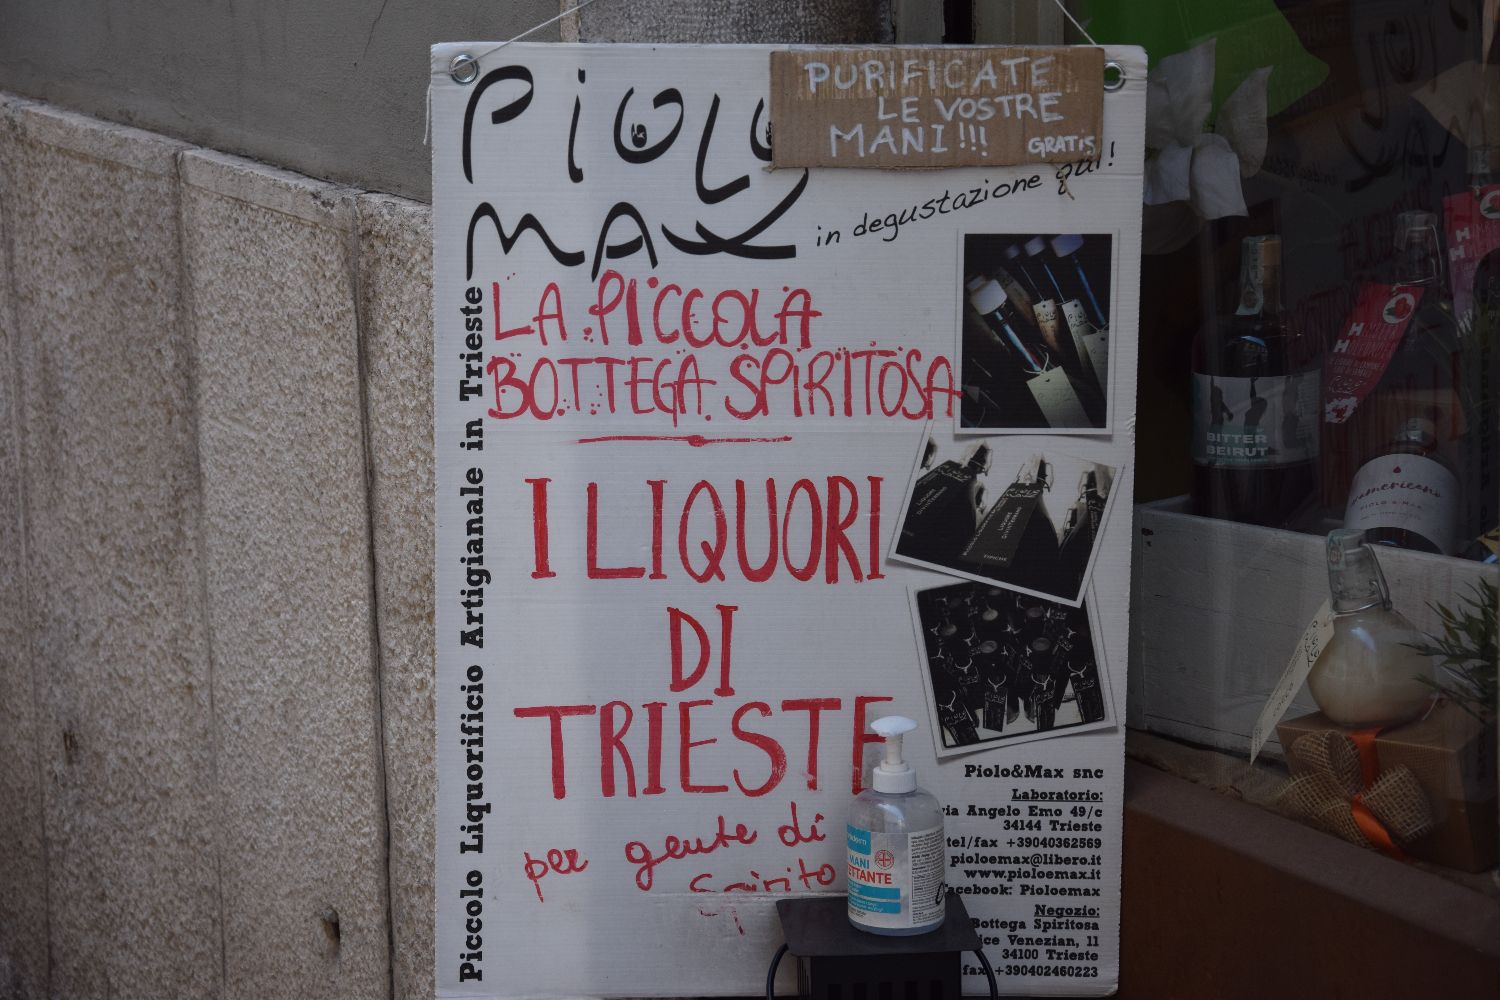 PIOLO
MAX
PURIFICATE
LE VOSTRE
MANI!!!
GRATIS
in degustazione qui!
LA PICCOLA
BOTTEGA SPIRITOSA
I LIQUORI
DI
TRIESTE
per gente di
Spirito
Piccolo Liquorificio Artigianale in Trieste
Piolo&Max snc
Laboratorio:
via Angelo Emo 49/c
34144 Trieste
tel/fax +39040362569
pioloemax@libero.it
www.pioloemax.it
Facebook: Pioloemax
Negozio:
Bottega Spiritosa
Venezian, 11
34100 Trieste
fax +390402460223
MANI
BITTER
BEIRUT
PIOLO & MAX